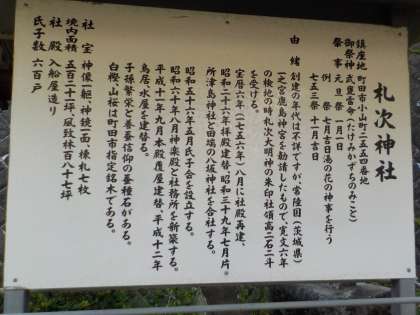 札次神社
鎮座地 町田市小山町二五五四番地
御祭神 武甕雷命(たけみかずちのみこと)
祭事 元旦祭 一月一日
祭礼 七月吉日湯の花の神事を行う
七五三祭 十一月吉日
由緒 創建の年代は不詳ですが、常陸国(茨城県)
一之宮鹿島神宮を勧請したもので、寛文六年
の検地の時札次大明神の朱印社領高二石二斗
を受ける。
宝暦六年(一七五六年)八月に社殿再建、
昭和二十六年拝殿建替、昭和三十九年七月片
所津島神社と田端の八坂神社を合社する。
昭和五十五年八月氏子会を設立する。
昭和六十年八月神楽殿と社務所を新築する。
平成十一年九月本殿覆屋建替、平成十二年
鳥居・水屋を建替る。
子孫繁栄と養蚕信仰の養種石がある。
白樫・山桜は町田市指定銘木である。
社宝 神像一軀、神鏡一面、棟札七枚
境内面積 五百二十一坪、風致林百八十七坪
社殿 入船屋造り
氏子数 六百戸